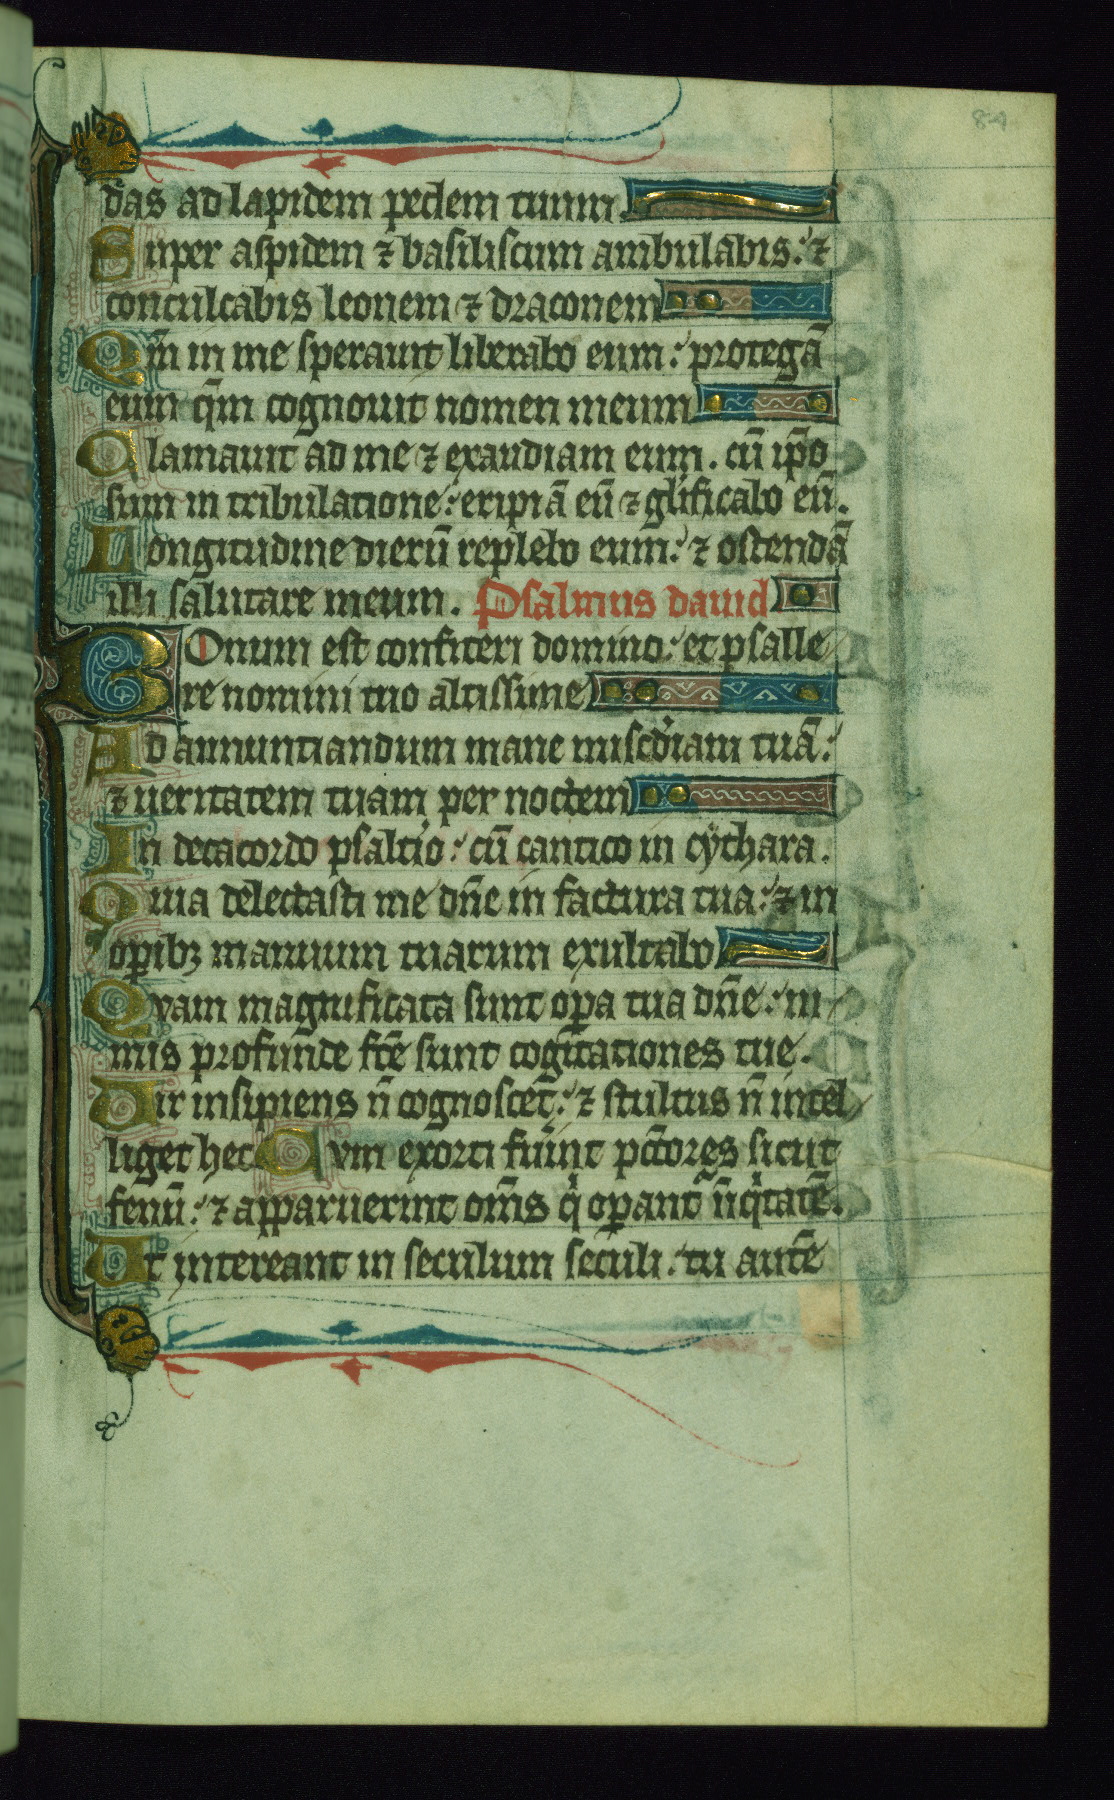 84
das ad lapidem pedem tuum.
Super aspidem ⁊ basiliscum ambulabis: ⁊
conculcabis leonem ⁊ draconem
Qm̄ in me sperauit liberabo eum: protegā
eum qm̄ cognouit nomen meum
Clamauit ad me ⁊ exaudiam eum. cū ip̄o
sum in tribulatione: eripiā eū ⁊ gl̄ificabo eū.
Longitudine dierū replebo eum: ⁊ ostendā
illi salutare meum. Psalmus dauid
BOnum est confiteri domino: et psalle
re nomini tuo altissime
Ad annuntiandum mane misc̄diam tuā:
⁊ ueritatem tuam per noctem
In decacordo psaltīo: cū cantico in cythara.
Quia delectasti me dn̄e in factura tua: ⁊ in
op̄ibꝫ manuum tuarum exultabo
Qvam magnificata sunt op̄a tua dn̄e: ni
mis profunde fc̄e sunt cogitationes tue.
Uir insipiens n̄ cognoscet: ⁊ stultus n̄ intel
liget hec Cvm exorti fuīnt pc̄c̄ores sicut
fenū: ⁊ apparuerint om̄s q̇ op̄ant᷑ īiq̇tatē.
Ut intereant in seculum seculi: tu autē